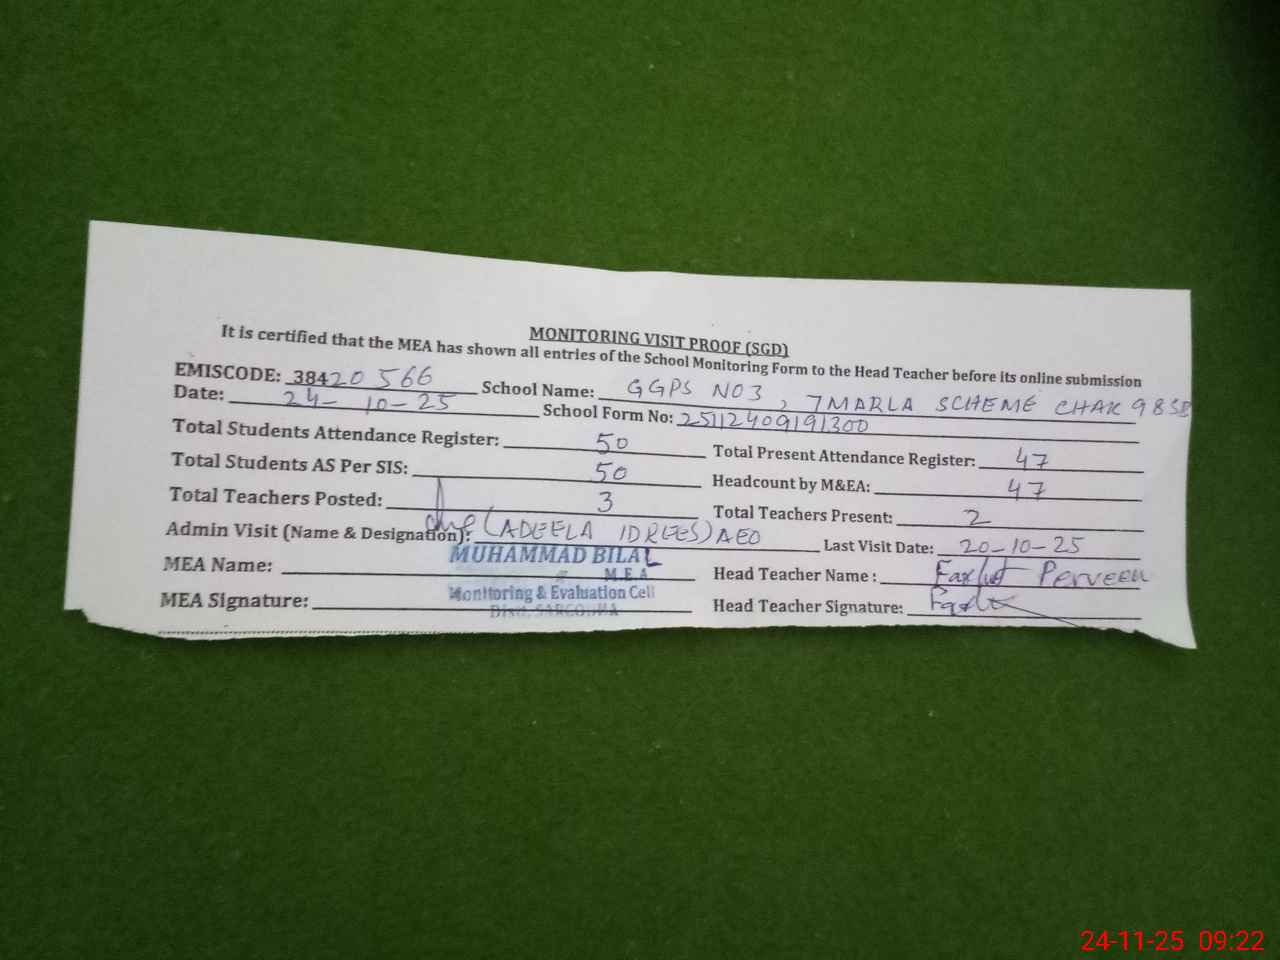 MONITORING VISIT PROOF (SGD)
It is certified that the MEA has shown all entries of the School Monitoring Form to the Head Teacher before its online submission
EMISCODE: 38420566 School Name: GGPS NO3, 7MARLA SCHEME CHAK 98SB
Date: 24-10-25 School Form No: 25112409191300
Total Students Attendance Register: 50 Total Present Attendance Register: 47
Total Students AS Per SIS: 50 Headcount by M&EA: 47
Total Teachers Posted: 3 Total Teachers Present: 2
Admin Visit (Name & Designation): (ADEELA IDREES) AEO Last Visit Date: 20-10-25
MEA Name: MUHAMMAD BILAL Head Teacher Name : Perveen
M.E.A
MEA Signature: Monitoring & Evaluation Cell Head Teacher Signature:
Distt. SARGODHA
24-11-25 09:22